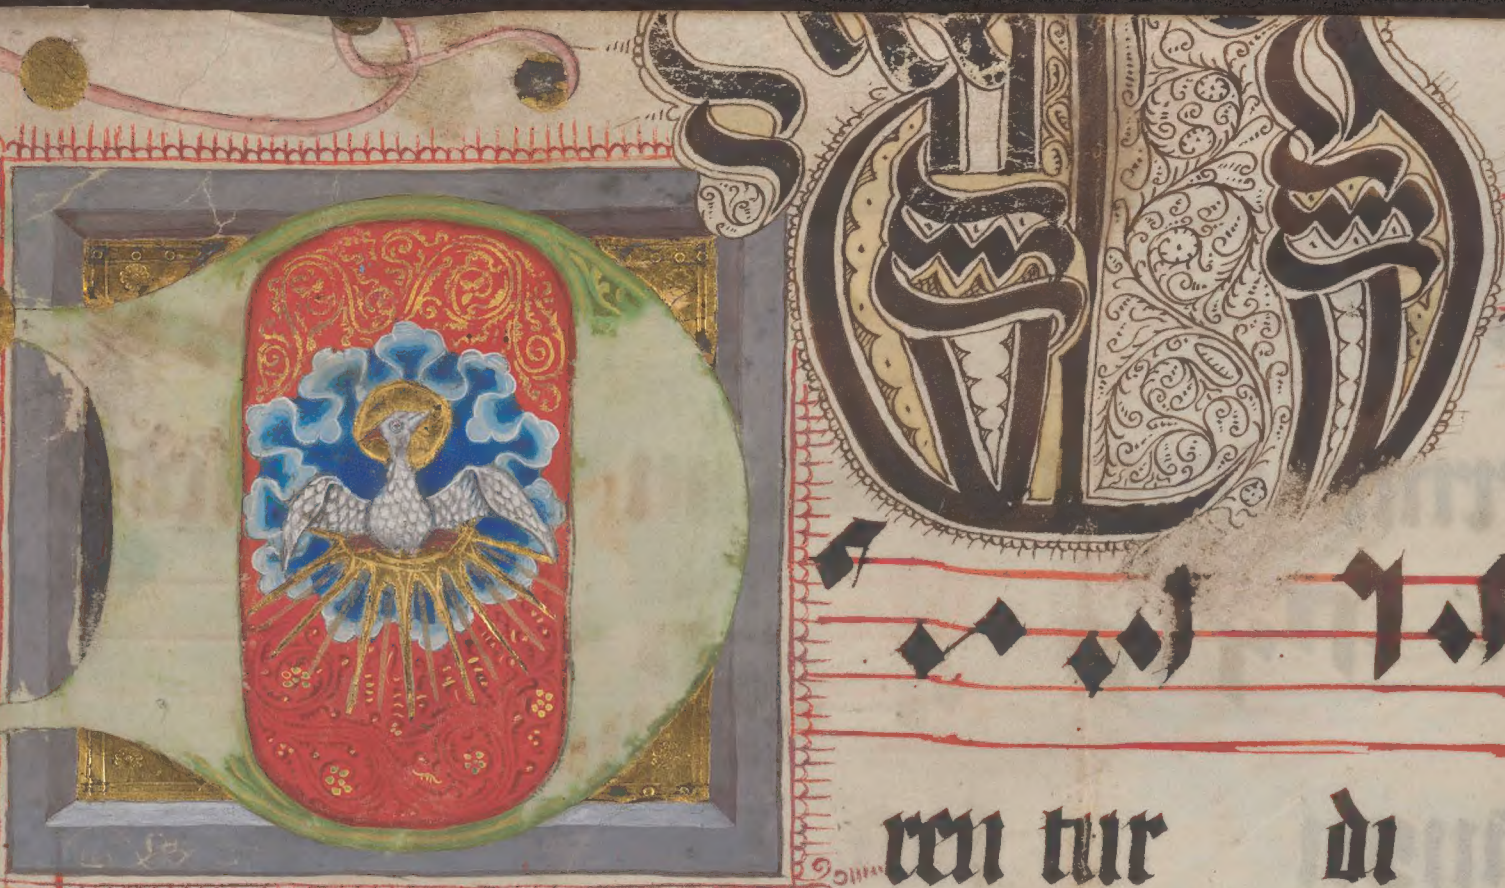 D
ren tur di